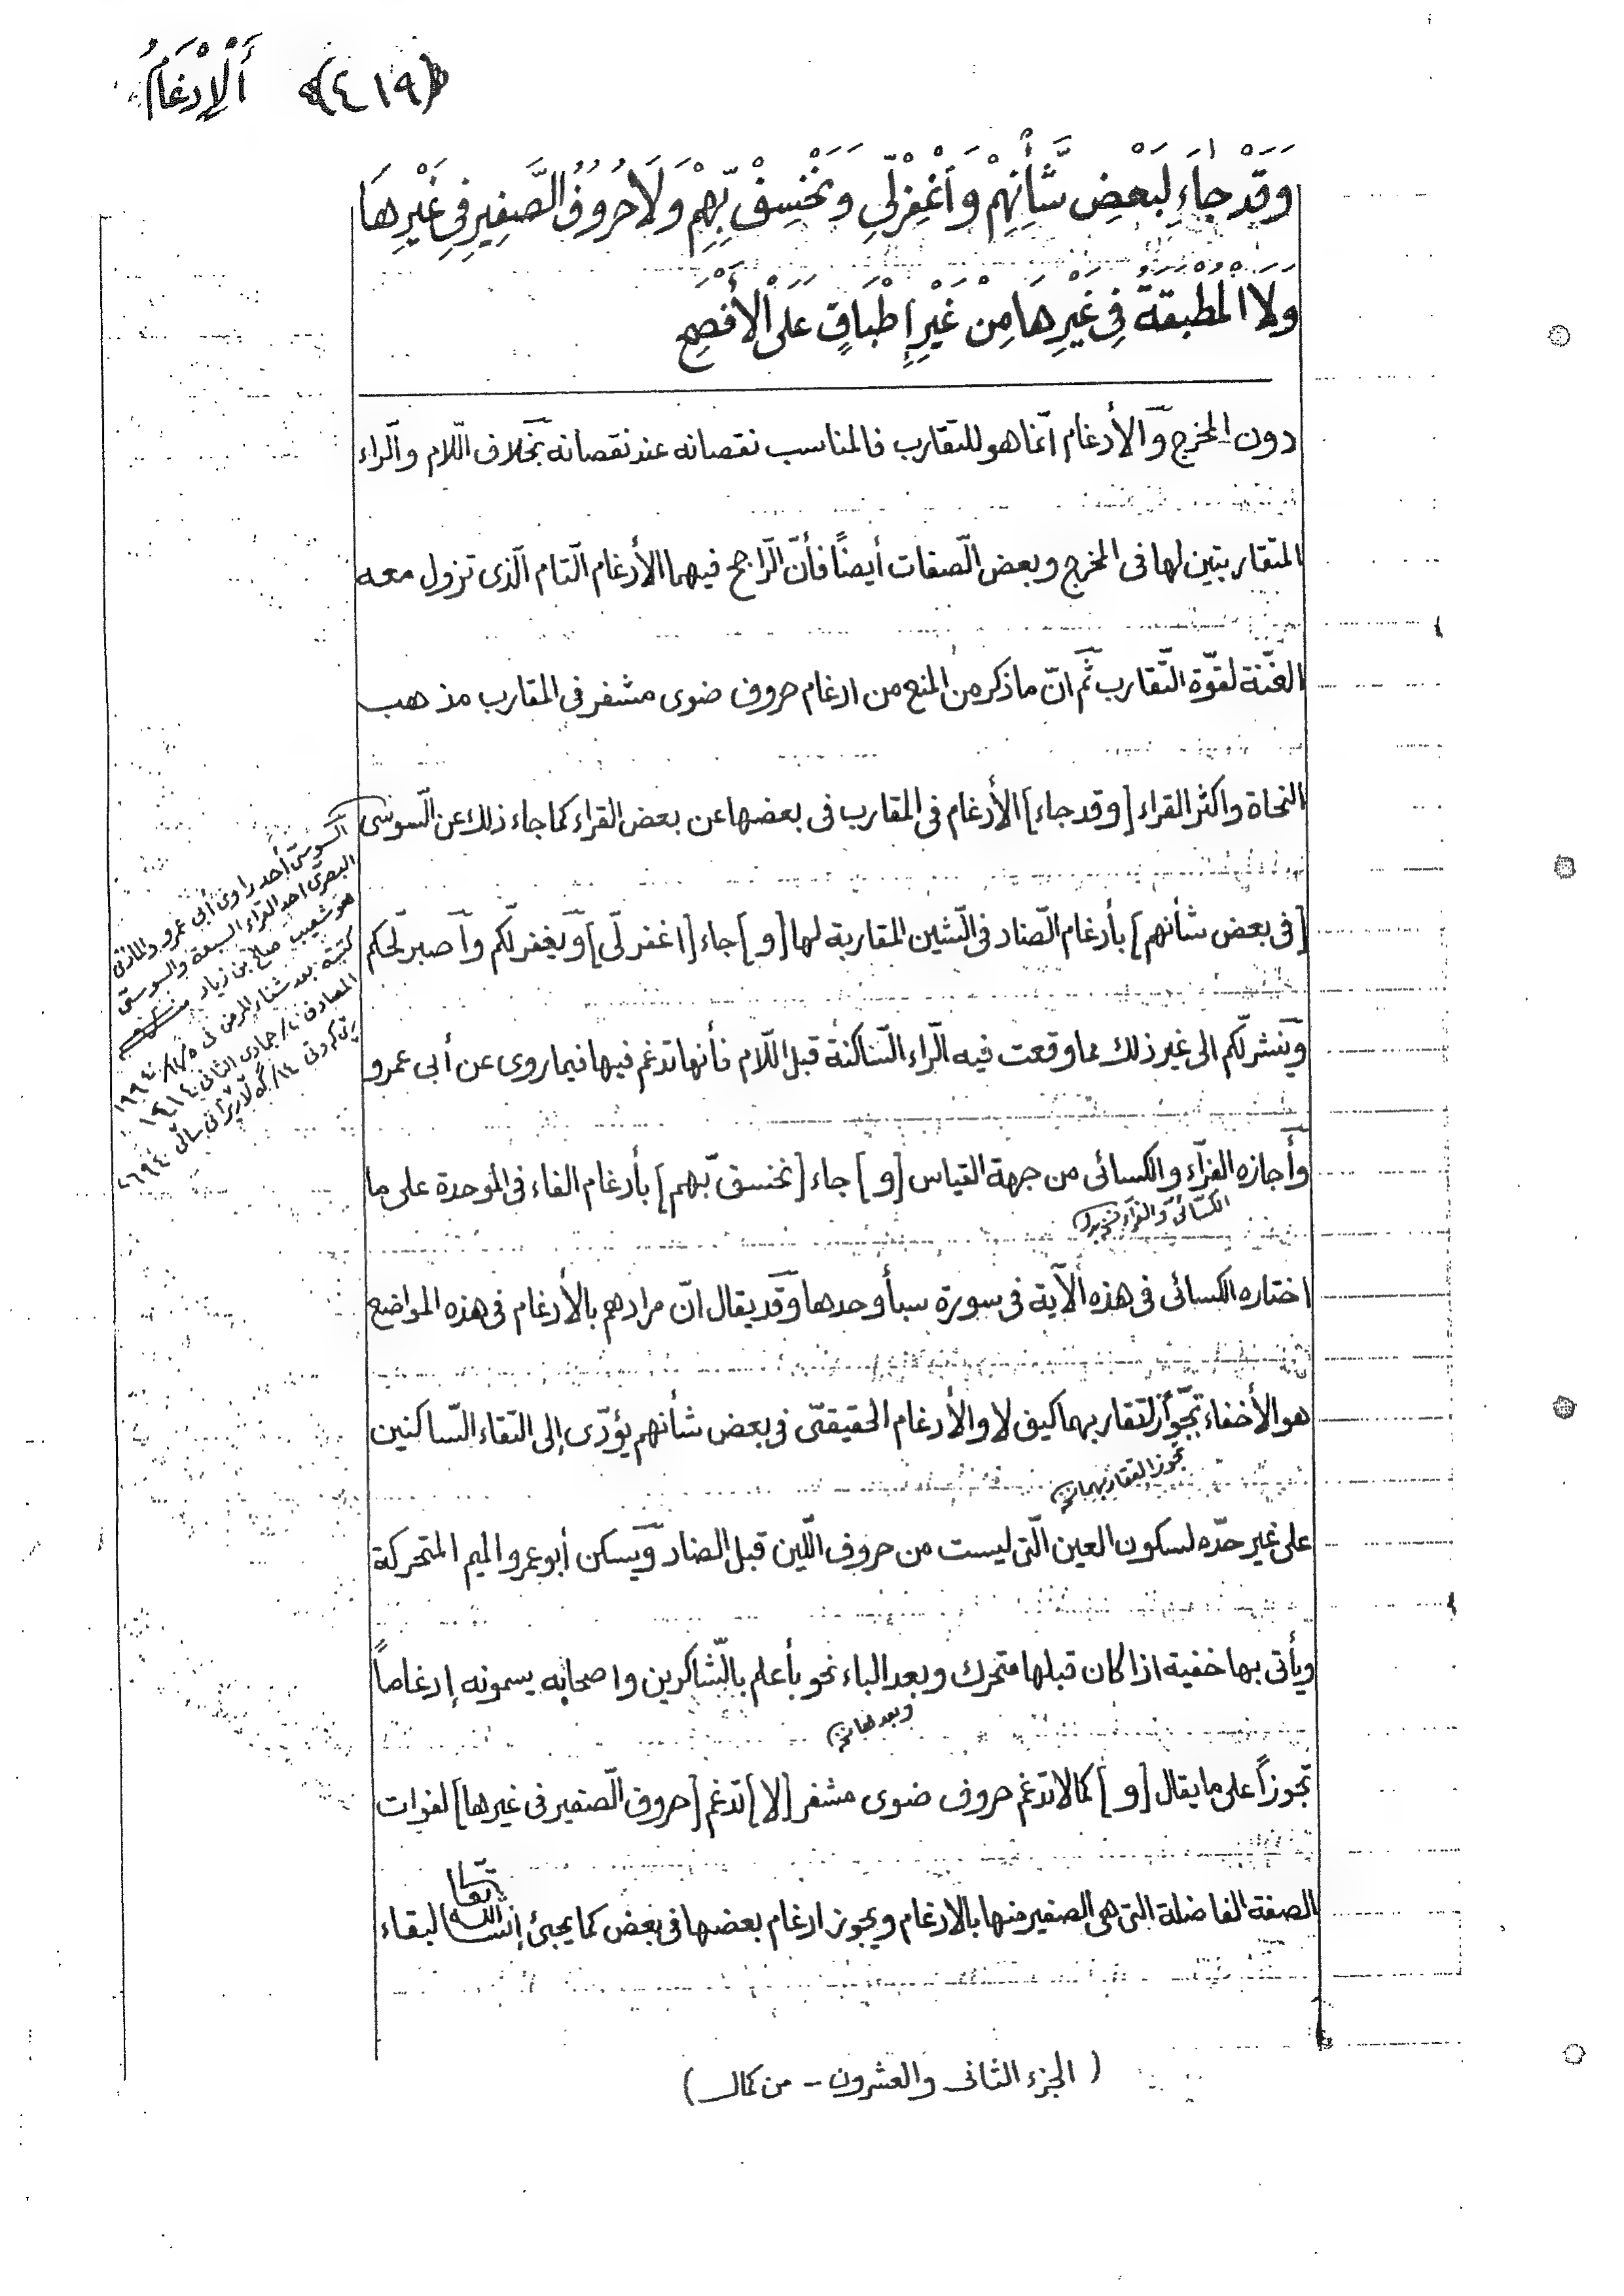 ﴿٤١٩﴾ أَلْإِدْغَامُ
وَقَدْ جَاءَ لِبَعْضِ شَّأْنِهِمْ وَٱغْفِرْلِّي وَنَخْسِفْ بِّهِمْ وَلَا حُرُوفُ الصَّفِيرِ فِي غَيْرِهَا
وَلَا الْمُطْبَقَةُ فِي غَيْرِهَا مِنْ غَيْرِ إِطْبَاقٍ عَلَى الْأَفْصَحِ
دون المخرج والأدغام انّما هو للتقارب فالمناسب نقصانه عند نقصانه بخلاف اللّام والرّاء
المتقاربتين لها فى المخرج وبعض الصّفات أيضاً فأنّ الرّاجح فيهما الأدغام التام الّذى تزول معه
الغنّة لقوّة التّقارب ثمّ انّ ما ذكر من المنع من ادغام حروف ضوى مشفر فى المقارب مذهب
النحاة واكثر القراء [وقد جاء] الأدغام فى المقارب فى بعضها عن بعض القراء كما جاء ذلك عن السّوسى
[فى بعض شأنهم] بأدغام الضّاد فى الشّين المقاربة لها [و] جاء [اغفر لّى] ويغفر لّكم وأصبر لّحكم
وينشر لّكم الى غير ذلك مما وقعت فيه الرّاء السّاكنة قبل اللّام فأنها تدغم فيها فيما روى عن أبى عمرو
وأجازه الفرّاء والكسائى من جهة القياس [و] جاء [نخسف بّهم] بأدغام الفاء فى الموحدة على ما
الكسائى والفرّاء نخ بدل
اختاره الكسائى فى هذه الآية فى سورة سبأ وحدها وقد يقال انّ مرادهم بالأدغام فى هذه المواضع
هو الأخفاء تجوّزاً لتقاربهما كيف لا والأدغام الحقيقىّ فى بعض شأنهم يؤدّى إلى التقاء السّاكنين
تجوز التقاربهما نخ
على غير حدّه لسكون العين الّتى ليست من حروف اللّين قبل الضاد ويسكن أبو عمرو الميم المتحركة
ويأتى بها خفية اذا كان قبلها متحرك وبعد الباء نحو بأعلم بالشّاكرين واصحابه يسمونه إدغاماً
وبعدها نخ
تجوزاً على ما يقال [و] كما لا تدغم حروف ضوى مشفر [لا] تدغم [حروف الصّفير فى غيرها] لفوات
الصفة الفاضلة التى هى الصفير منها بالادغام ويجوز ادغام بعضها فى بعض كما يجيئ إنشاء الله تعا لبقاء
السوسىّ أحد راوى أبى عمرو والمازنىّ
البصرىّ احد القراء السبعة والسوسىّ
هو شعيب صالح بن زياد
كتبته بعد شفاء المرض فى ١٩٩٤/١٢/٥
المصادف ٢/جمادى الثانى ١٤١٤
(الجزء الثانى والعشرون - من كمال)